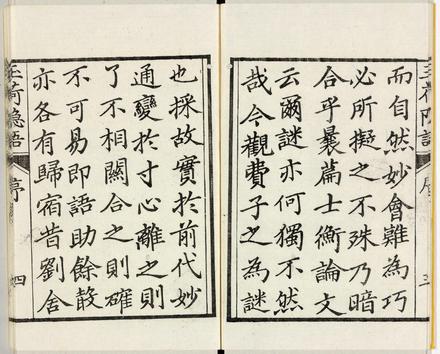 玉荷隱語
序
三
而自然妙會難為巧
必所擬之不殊乃暗
合乎曩篇士衡論文
云爾謎亦何獨不然
哉今觀費子之為謎
也採故實於前代妙
通變於寸心離之則
了不相關合之則確
不可易即語助餘散
亦各有歸宿昔劉舍
玉荷隱語
序
四